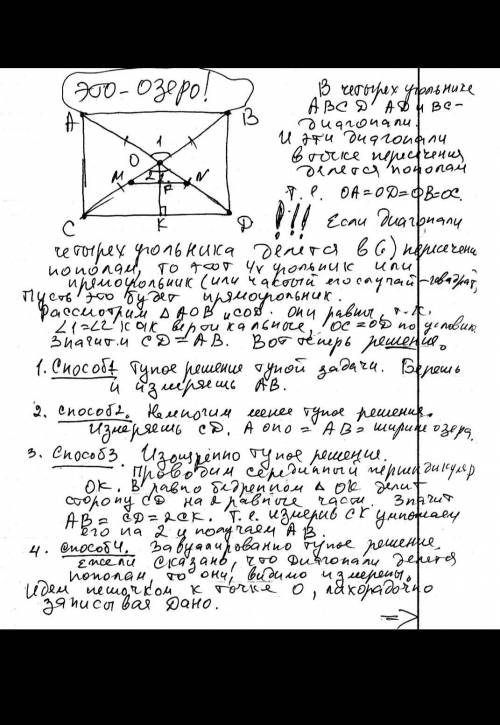 Это - озеро!
В четырех угольнике
ABCD AD и BC -
диагонали.
И эти диагонали
в точке пересечения
делется пополам
т. е. OA=OD=OB=OC.
!!! Если диагонали
A B O 1 2 M N P C K D
четырех угольника делется в (·) пересечени
пополам, то тот 4х угольник или
прямоугольник (или частый его случай - квадрат)
Пусть это будет прямоугольник.
Рассмотрим △ AOB и COD. они равны, т. к.
∠1=∠2 как вертикальные, OC=OD по условию
Значит и CD = AB. Вот теперь решение.
1. Способ1 Тупое решение тупой задачи. Берешь
и измеряешь AB.
2. Способ2. Немногим менее тупое решение.
Измеряешь CD. А оно = AB = ширине озера.
3. Способ3. Изощренно тупое решение.
Проводим серединный перпендикуляр
OK. В равнобедренном △ OK делит
сторону CD на 2 равные части. Значит
AB = CD = 2CK. Т. е. измерив CK умножаем
его на 2 и получаем AB.
4. Способ4. Завуалированно тупое решение.
Ежели сказано, что диагонали делется
пополам, то они, видимо измерены.
Идем пешочком к точке O, лихорадочно
записывая Дано.
=>